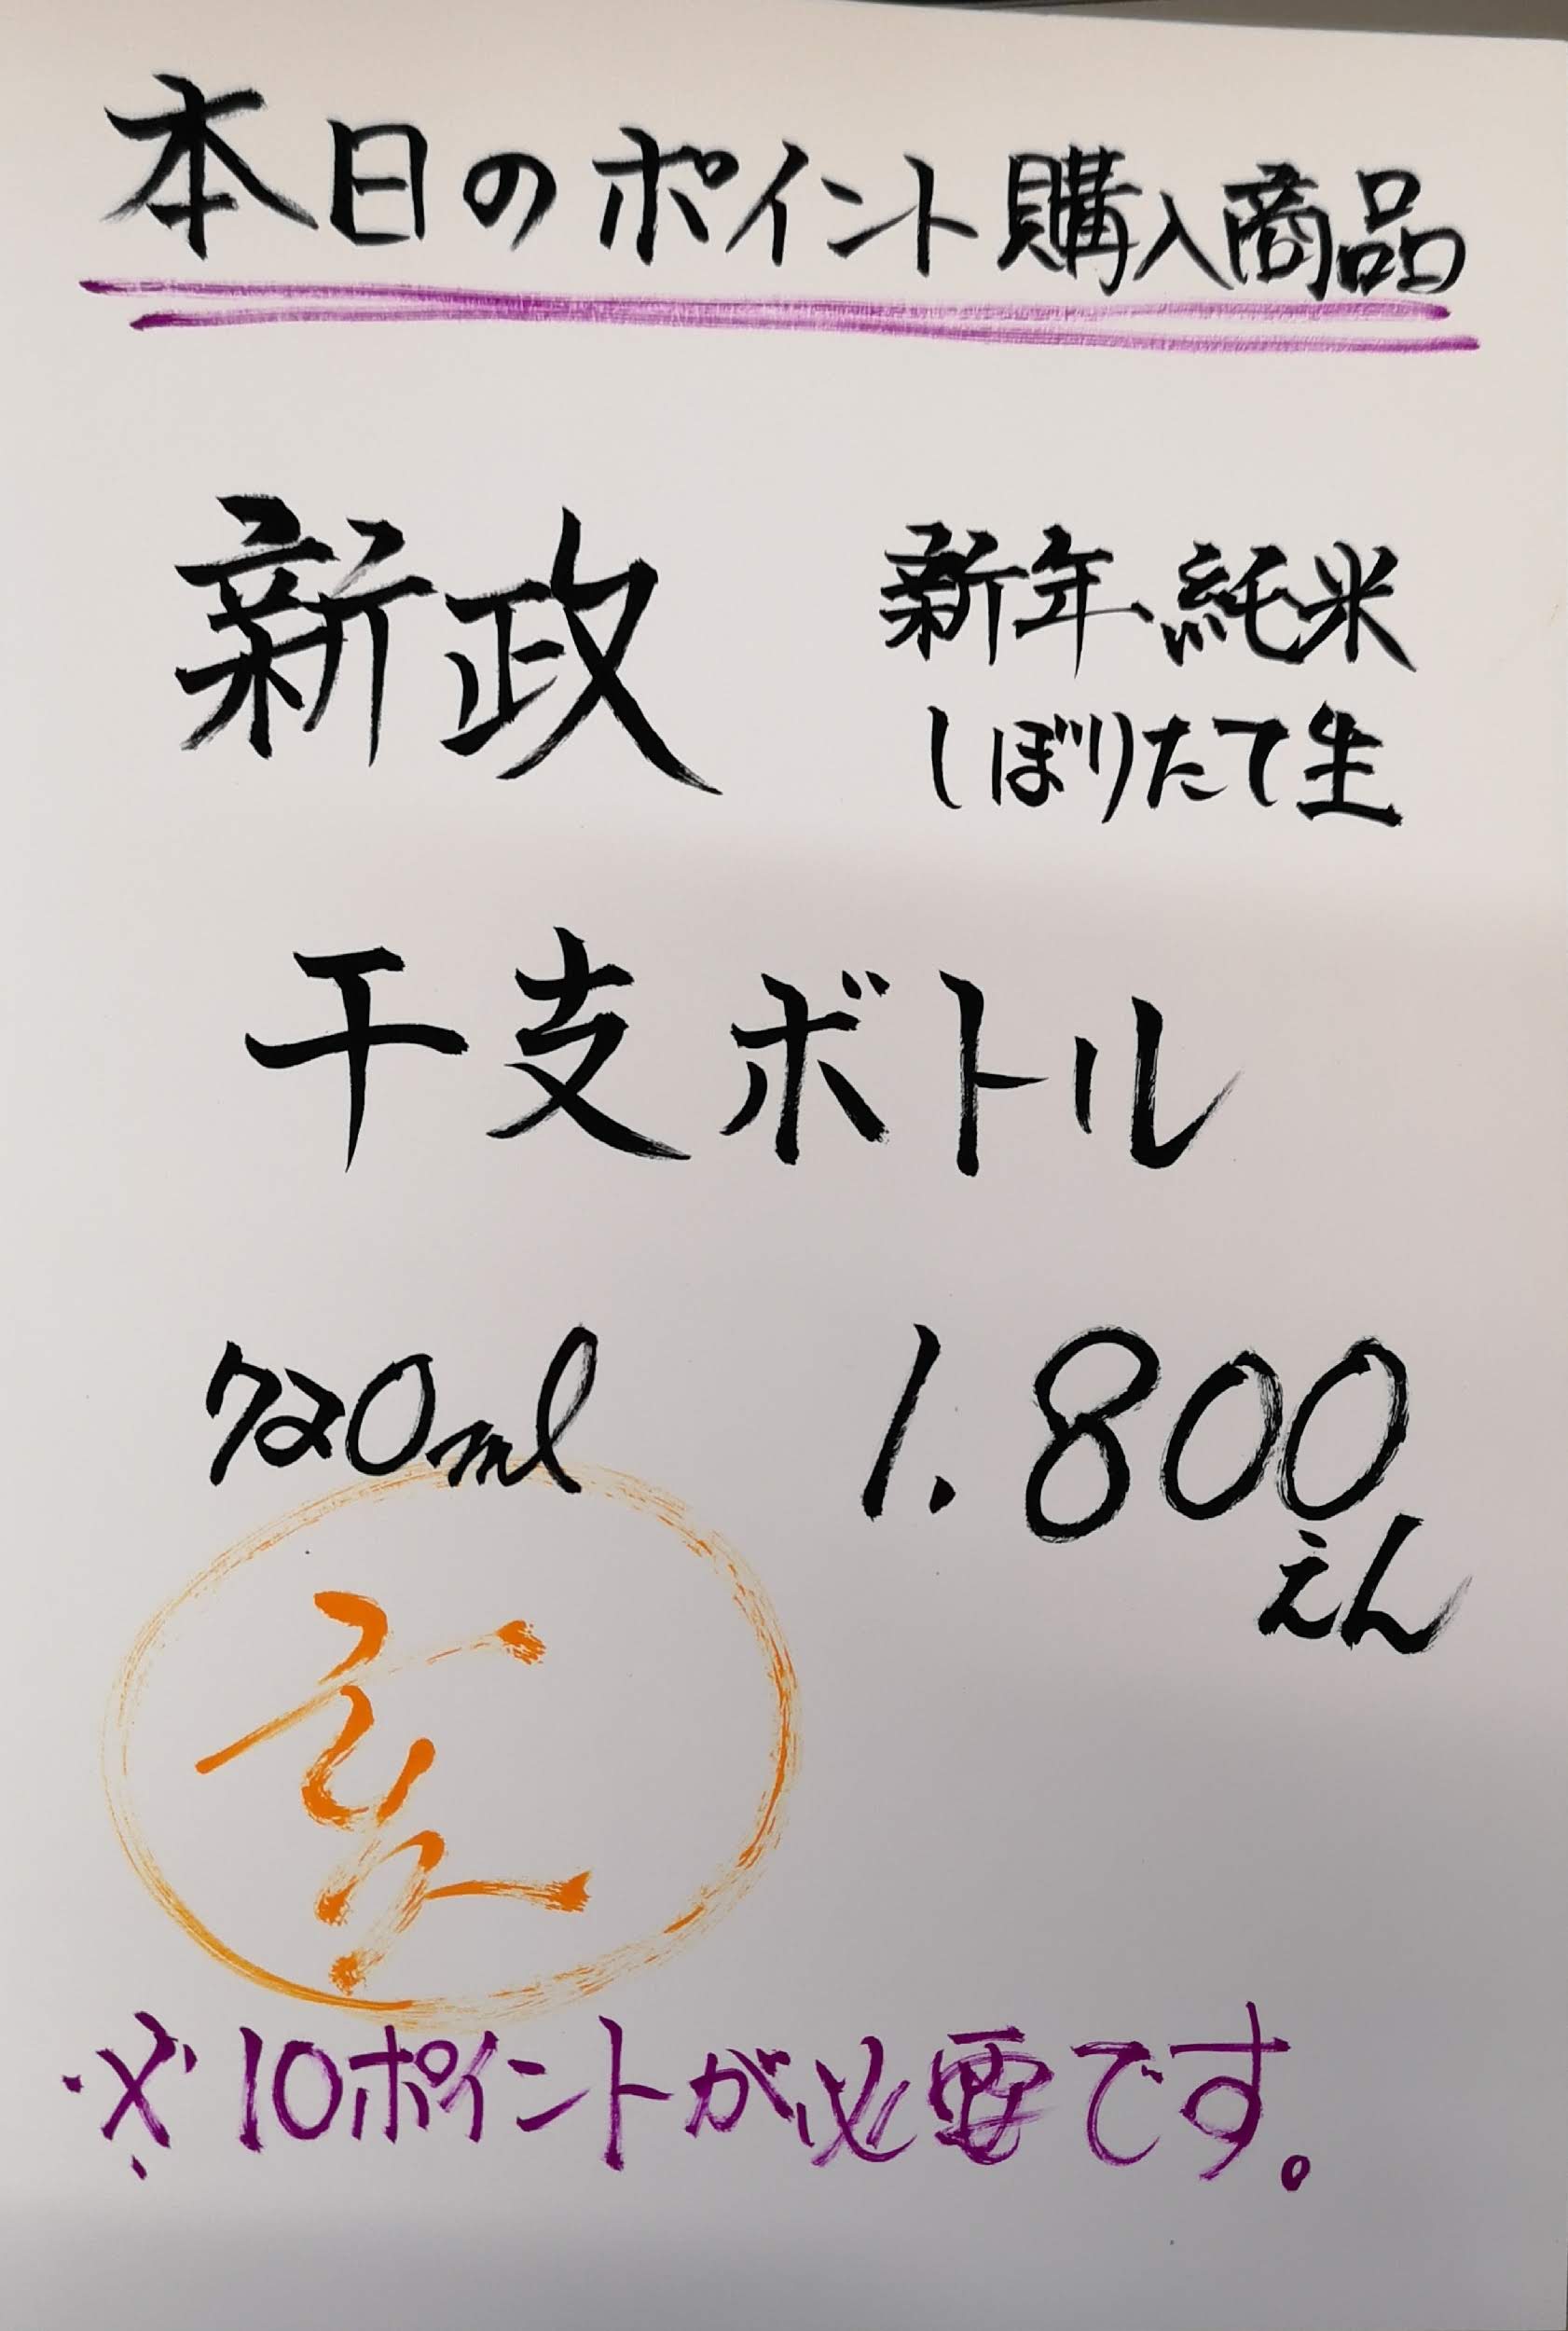 本日のポイント購入商品
新政 新年純米
しぼりたて生
干支ボトル
720ml 1.800
えん
亥
※10ポイントが必要です。